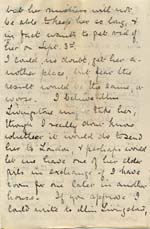 but her mistress will not
be able to keep her so long, &
in fact wants to get rid of
her on Sept. 3rd.
I could, no doubt, get her a-
nother place, but fear the
result would be the same, or
worse. I believe Miss
Livingstone may take her,
though I really don't know
whether it would do to send
her to London, & perhaps would
let us have one of her elder
girls in exchange, if I have
room for one later in another
house. If you approve I
could write to Miss Livingstone,